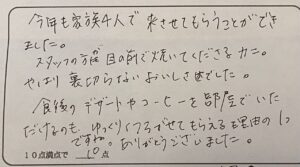 今年も家族4人で来させてもらうことができ
ました。
スタッフの方が目の前で焼いてくださるカニ。
やはり裏切らないおいしさでした。
食後のデザートやコーヒーを部屋でいた
だけるのも、ゆっくりくつろがせてもらえる理由の1つ
ですね。ありがとうございました。
10点満点で 10 点